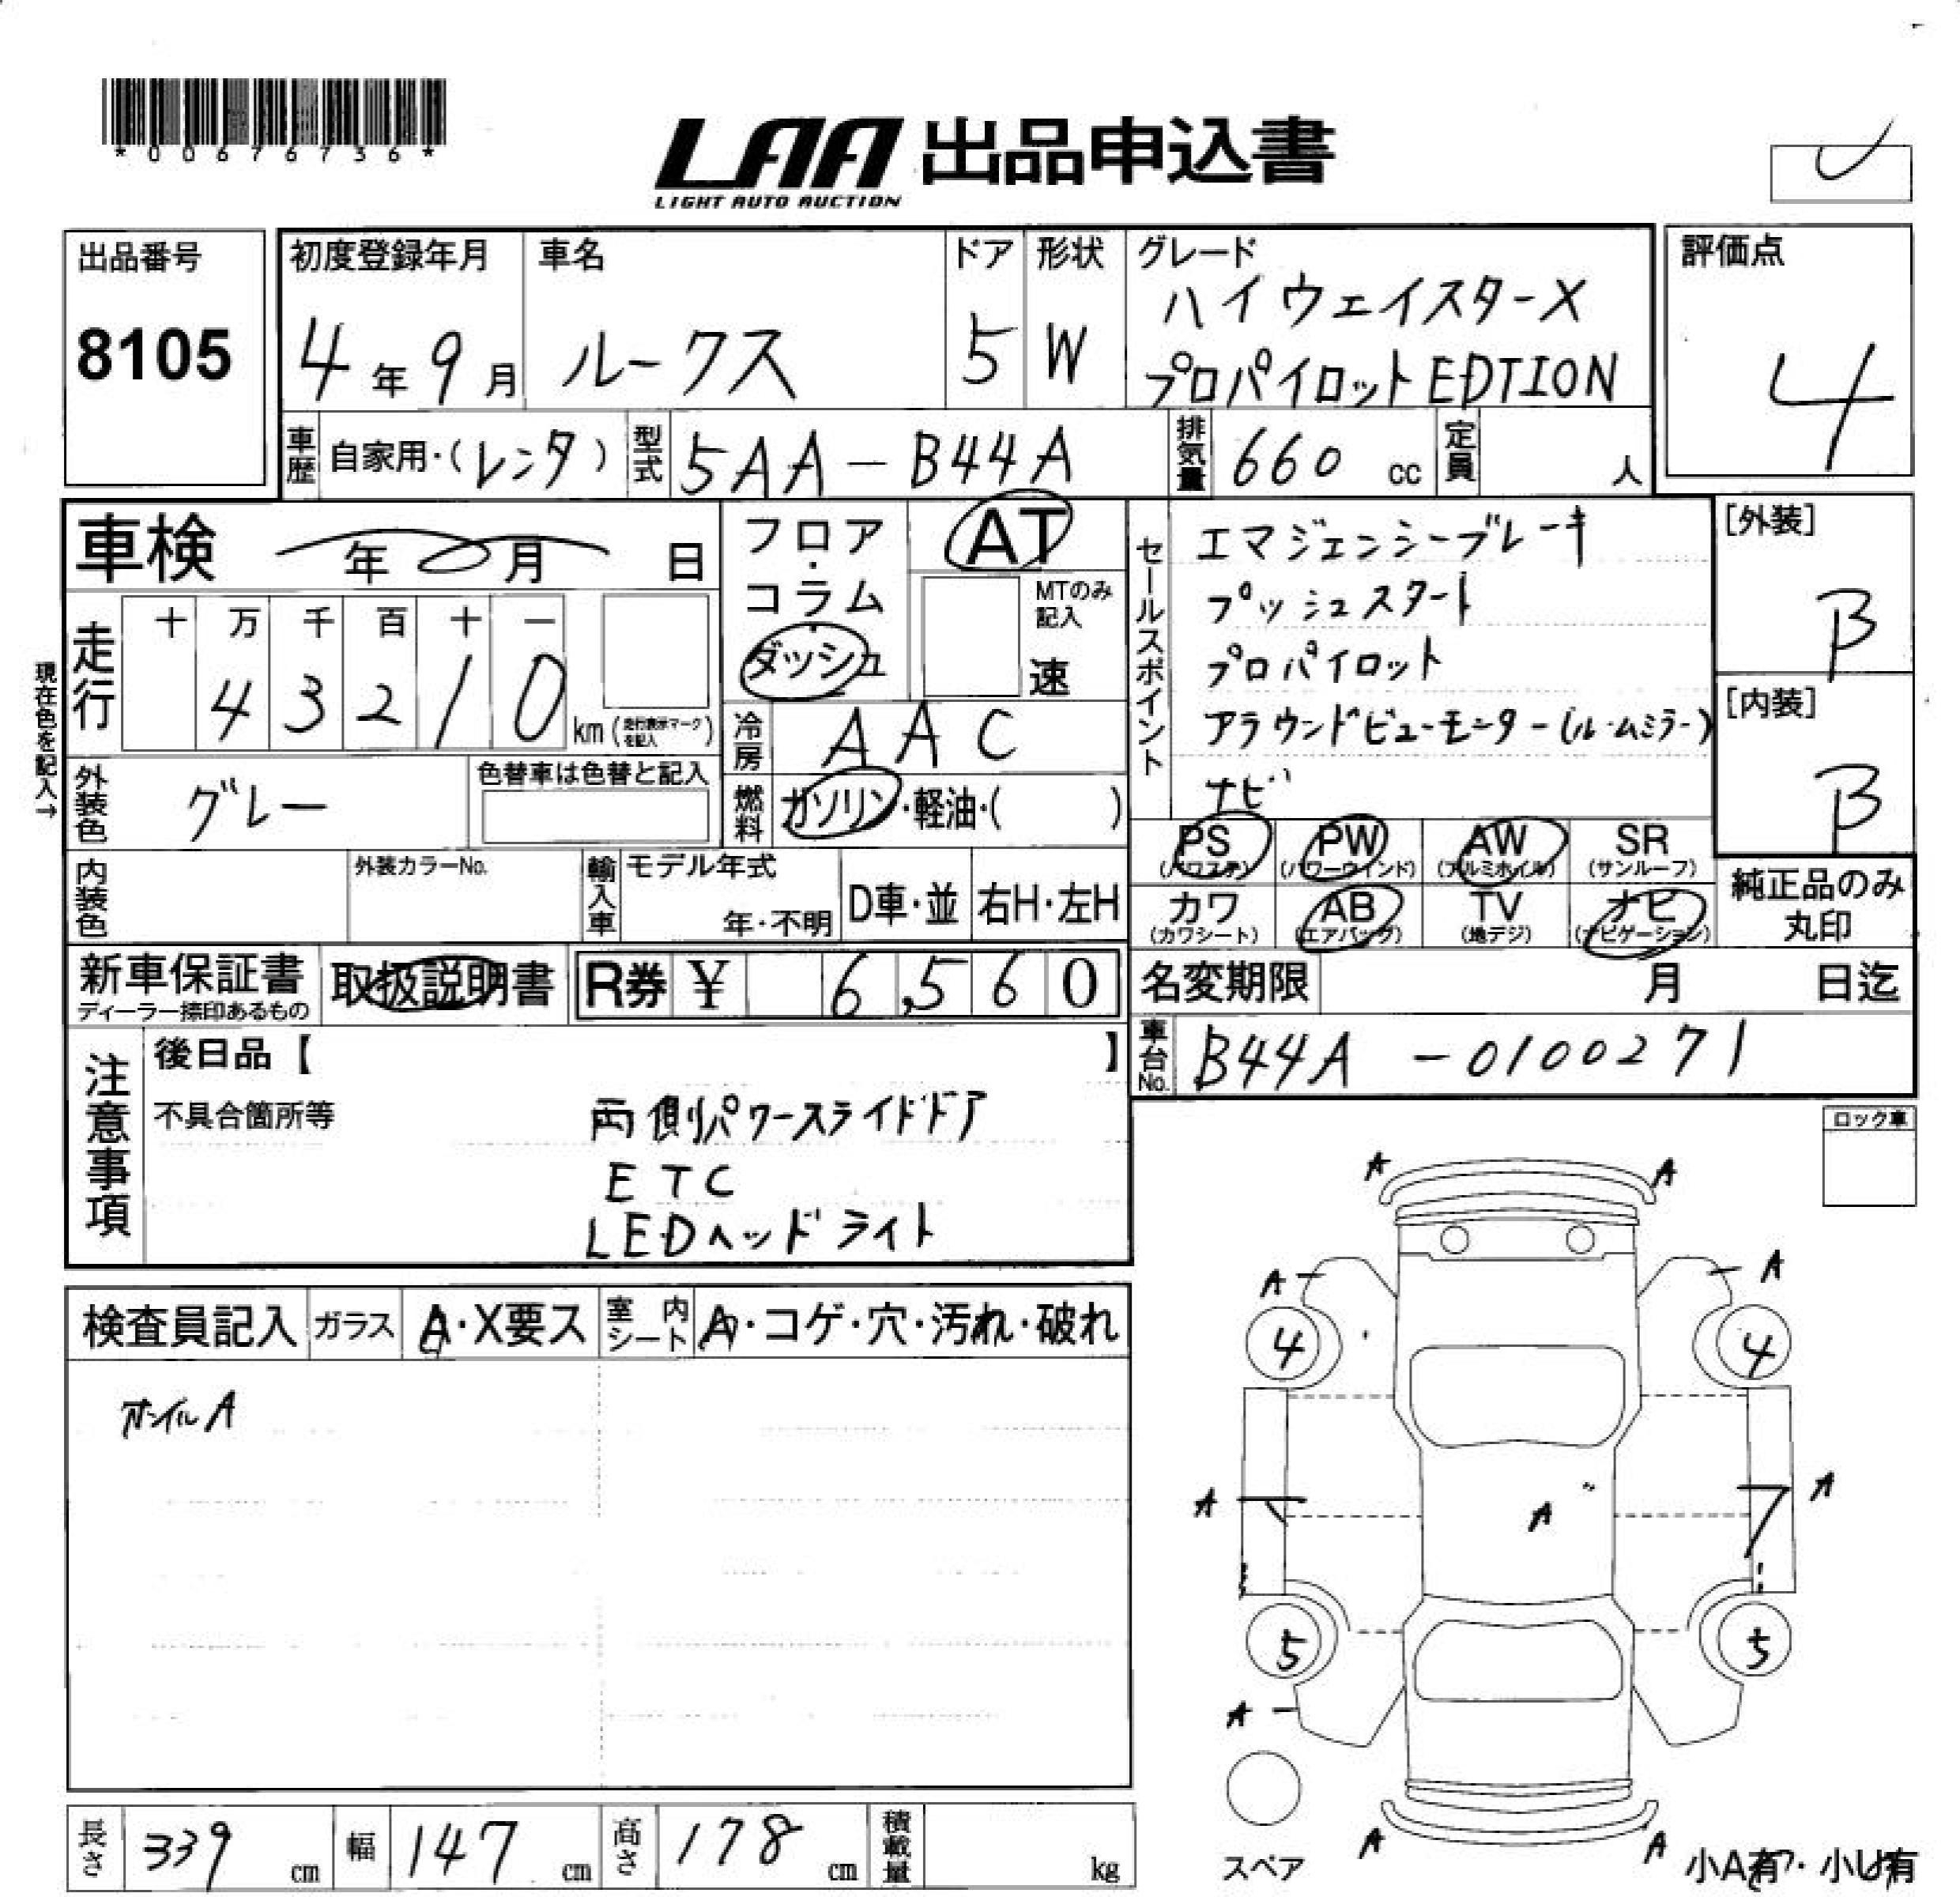 *00676736*
LAA 出品申込書
LIGHT AUTO AUCTION
出品番号
8105
初度登録年月
4年9月
車名
ルークス
ドア
5
形状
W
グレード
ハイウェイスターX
プロパイロットEDTION
評価点
4
車歴
自家用・(レンタ)
型式
5AA-B44A
排気量
660 cc
定員
人
車検 年 月 日
現在色を記入→
走行
十 万 千 百 十 一
4 3 2 1 0 km (走行表示マークを記入)
フロア・コラム・ダッシュ
AT
MTのみ記入
速
冷房
AAC
燃料
ガソリン・軽油・( )
外装色
グレー
色替車は色替と記入
内装色
外装カラーNo.
輸入車
モデル年式
年・不明
D車・並
右H・左H
セールスポイント
エマジェンシーブレーキ
プッシュスタート
プロパイロット
アラウンドビューモニター(ルームミラー)
ナビ
[外装]
B
[内装]
B
PS (パワステ)
PW (パワーウインド)
AW (アルミホイル)
SR (サンルーフ)
カワ (カワシート)
AB (エアバック)
TV (地デジ)
ナビ (ナビゲーション)
純正品のみ丸印
新車保証書
ディーラー捺印あるもの
取扱説明書
R券 ¥ 6,560
名変期限 月 日迄
車台No.
B44A-0100271
注意事項
後日品【 】
不具合箇所等
両側パワースライドドア
ETC
LEDヘッドライト
ロック車
検査員記入
ガラス
A・X要ス
室内シート
A・コゲ・穴・汚れ・破れ
ホイルA
A A
A A
4 4
A A
A
5 5
A
A A
スペア
小A有・小U有
長さ 339 cm
幅 147 cm
高さ 178 cm
積載量 kg